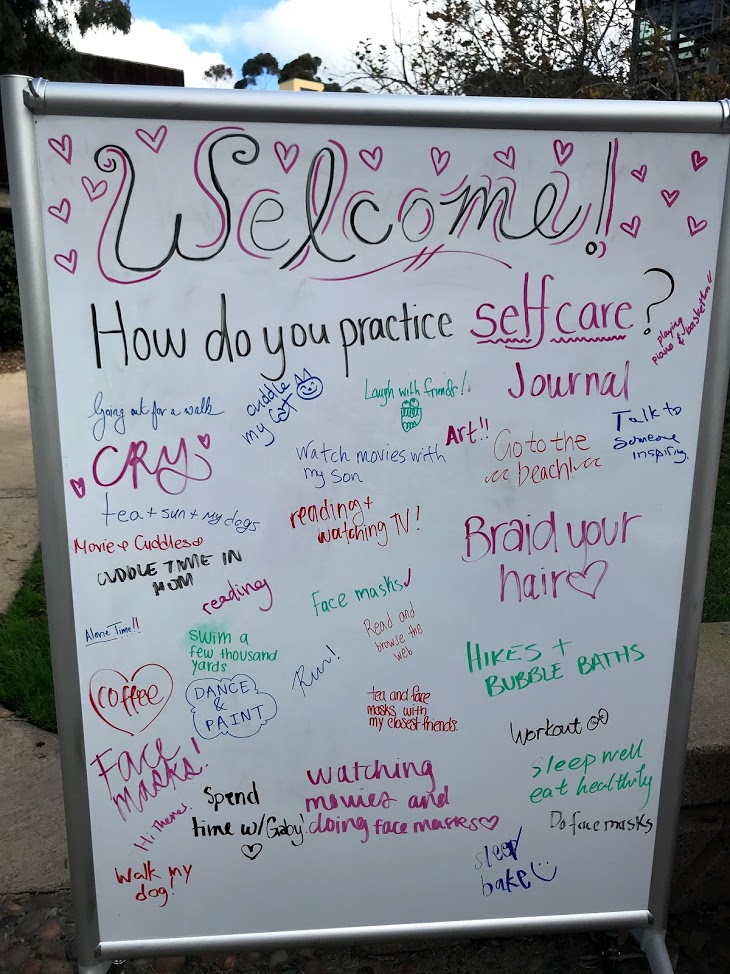 Welcome!
How do you practice self care?
playing
piano & basketball
Going out for a walk
cuddle
my cat
Laugh with friends!
Journal
CRY
Watch movies with
my Son
Art!!
Go to the
beach!
Talk to
Someone
inspiring.
tea + sun + my dogs
reading +
watching TV!
Movie & Cuddles
CUDDLE TIME IN
MOM
Braid your
hair
reading
Face masks
Alone Time!!
Swim a
few thousand
yards
Read and
browse the
web
Run!
HIKES +
BUBBLE BATHS
coffee
DANCE
&
PAINT
tea and face
masks with
my closest friends.
Workout
Face
masks!
Hi Theme!
Spend
time w/ Gaby!
watching
movies and
doing face masks
Sleep well
eat healthily
Do face masks
Walk my
dog!
sleep
bake